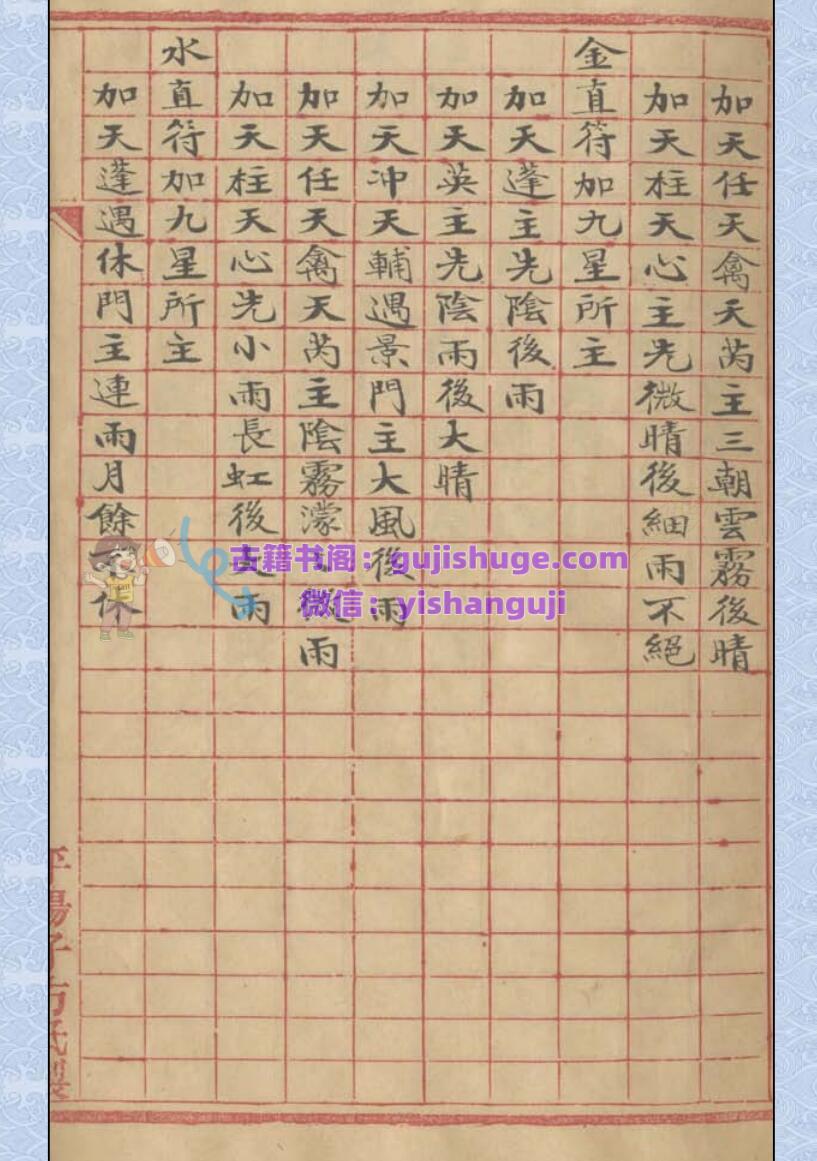 加天任天禽天芮主三朝雲霧後晴
加天柱天心主先微晴後細雨不絕
金直符加九星所主
加天蓬主先陰後雨
加天英主先陰雨後大晴
加天冲天輔遇景門主大風後雨
加天任天禽天芮主陰霧濛 後雨
加天柱天心先小雨長虹後 雨
水直符加九星所主
加天蓬遇休門主連雨月餘不休
古籍书阁：gujishuge.com
微信：yishanguji